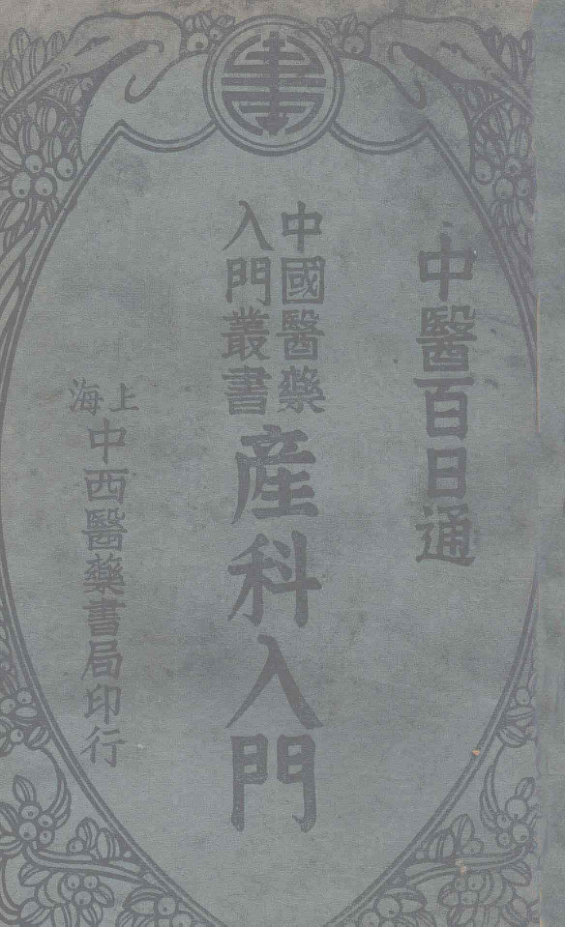 中醫百日通
中國醫藥
入門叢書
產科入門
上海
中西醫藥書局印行